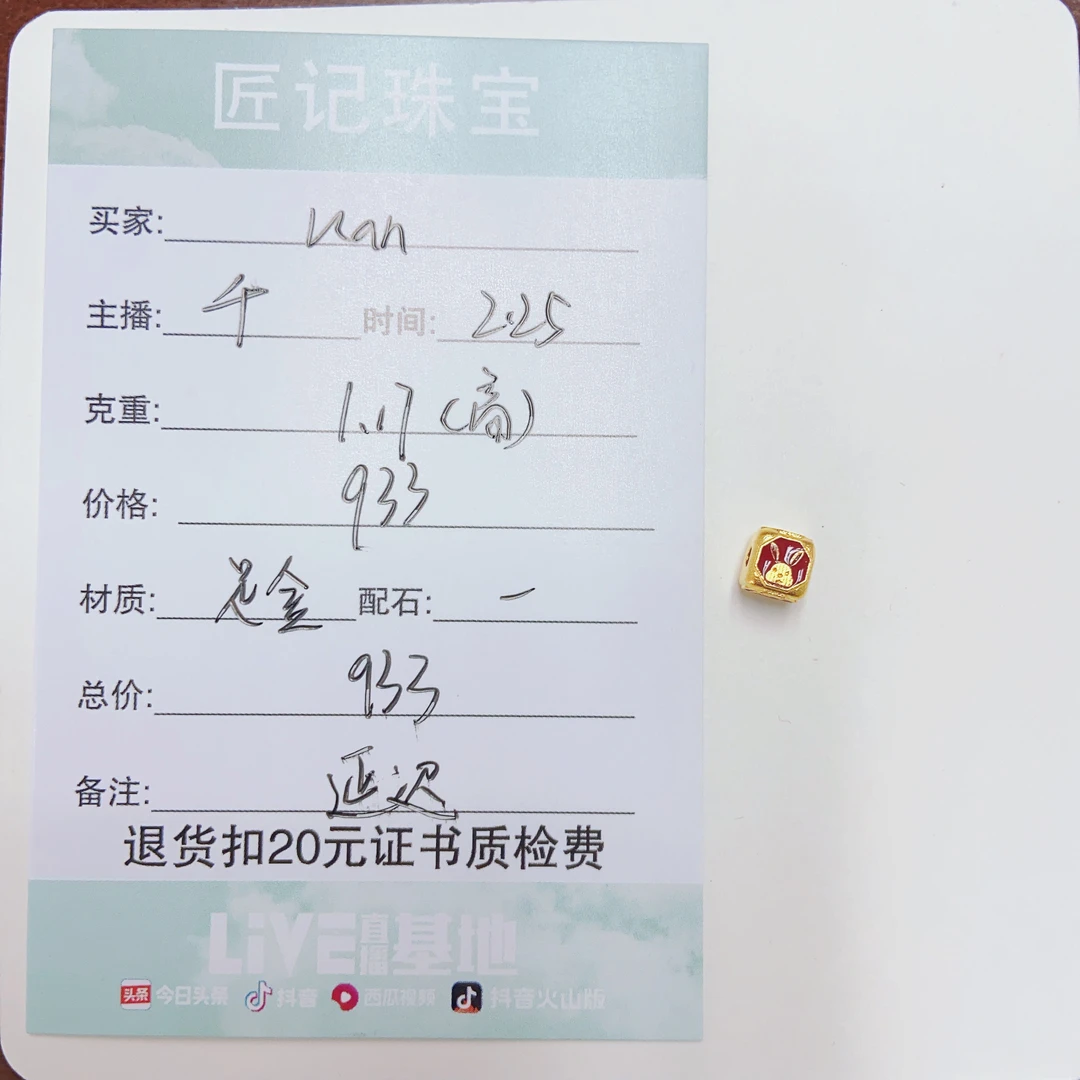 匠记珠宝
买家: Kan
主播: 千 时间: 2.25
克重: 1.17 (高)
价格: 933
材质: 足金 配石: 一
总价: 933
备注: 延迟
退货扣20元证书质检费
LiVE直播基地
头条 今日头条 抖音 西瓜视频 抖音火山版